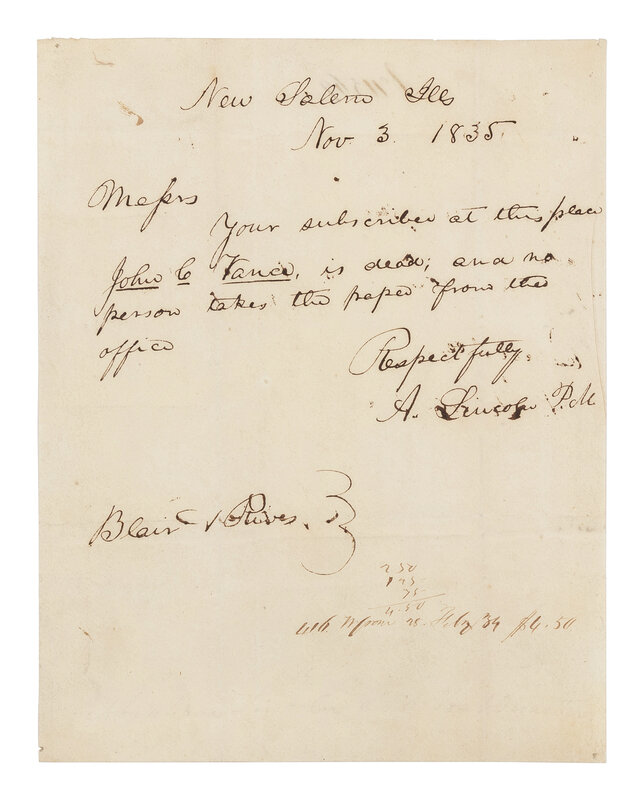 New Salem Ills
Nov 3. 1835.
Messrs
Your subscriber at this place
John C Vance, is dead; and no
person takes the paper from the
office
Respectfully
A. Lincoln P.M
Blair & Rives.
250
125
75
4.50
from 25. Feby 34 $4.50